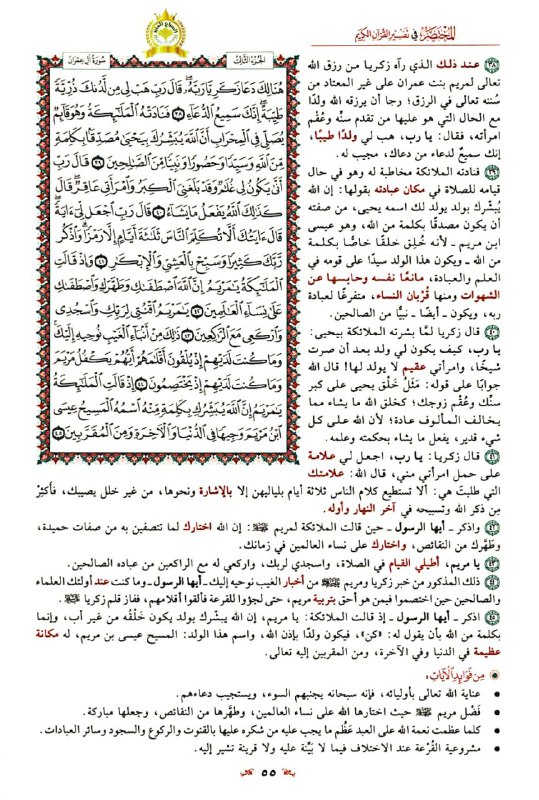 المختصر في تفسير القرآن الكريم
سورة آل عمران
الجزء الثالث
هُنَالِكَ دَعَا زَكَرِيَّا رَبَّهُۥ ۖ قَالَ رَبِّ هَبْ لِى مِن لَّدُنكَ ذُرِّيَّةً
طَيِّبَةً ۖ إِنَّكَ سَمِيعُ ٱلدُّعَآءِ ٣٨ فَنَادَتْهُ ٱلْمَلَٰٓئِكَةُ وَهُوَ قَآئِمٌ
يُصَلِّى فِى ٱلْمِحْرَابِ أَنَّ ٱللَّهَ يُبَشِّرُكَ بِيَحْيَىٰ مُصَدِّقًۢا بِكَلِمَةٍ
مِّنَ ٱللَّهِ وَسَيِّدًا وَحَصُورًا وَنَبِيًّا مِّنَ ٱلصَّٰلِحِينَ ٣٩ قَالَ رَبِّ
أَنَّىٰ يَكُونُ لِى غُلَٰمٌ وَقَدْ بَلَغَنِىَ ٱلْكِبَرُ وَٱمْرَأَتِى عَاقِرٌ ۖ قَالَ
كَذَٰلِكَ ٱللَّهُ يَفْعَلُ مَا يَشَآءُ ٤٠ قَالَ رَبِّ ٱجْعَل لِّىٓ ءَايَةً ۖ
قَالَ ءَايَتُكَ أَلَّا تُكَلِّمَ ٱلنَّاسَ ثَلَٰثَةَ أَيَّامٍ إِلَّا رَمْزًا ۗ وَٱذْكُر
رَّبَّكَ كَثِيرًا وَسَبِّحْ بِٱلْعَشِىِّ وَٱلْإِبْكَٰرِ ٤١ وَإِذْ قَالَتِ
ٱلْمَلَٰٓئِكَةُ يَٰمَرْيَمُ إِنَّ ٱللَّهَ ٱصْطَفَىٰكِ وَطَهَّرَكِ وَٱصْطَفَىٰكِ
عَلَىٰ نِسَآءِ ٱلْعَٰلَمِينَ ٤٢ يَٰمَرْيَمُ ٱقْنُتِى لِرَبِّكِ وَٱسْجُدِى
وَٱرْكَعِى مَعَ ٱلرَّٰكِعِينَ ٤٣ ذَٰلِكَ مِنْ أَنۢبَآءِ ٱلْغَيْبِ نُوحِيهِ إِلَيْكَ ۚ
وَمَا كُنتَ لَدَيْهِمْ إِذْ يُلْقُونَ أَقْلَٰمَهُمْ أَيُّهُمْ يَكْفُلُ مَرْيَمَ
وَمَا كُنتَ لَدَيْهِمْ إِذْ يَخْتَصِمُونَ ٤٤ إِذْ قَالَتِ ٱلْمَلَٰٓئِكَةُ
يَٰمَرْيَمُ إِنَّ ٱللَّهَ يُبَشِّرُكِ بِكَلِمَةٍ مِّنْهُ ٱسْمُهُ ٱلْمَسِيحُ عِيسَى
ٱبْنُ مَرْيَمَ وَجِيهًا فِى ٱلدُّنْيَا وَٱلْءَاخِرَةِ وَمِنَ ٱلْمُقَرَّبِينَ ٤٥
٣٨ عند ذلك الذي رآه زكريا من رزق الله
تعالى لمريم بنت عمران على غير المعتاد من
سُننه تعالى في الرزق؛ رجا أن يرزقه الله ولدًا
مع الحال التي هو عليها من تقدم سنِّه وعُقْم
امرأته، فقال: يا رب، هب لي ولدًا طيبًا،
إنك سميعٌ لدعاء من دعاك، مجيب له.
٣٩ فنادته الملائكة مخاطبة له وهو في حال
قيامه للصلاة في مكان عبادته بقولها: إن الله
يُبشِّرك بولد يولد لك اسمه يحيى، من صفته
أن يكون مصدقًا بكلمة من الله، وهو عيسى
ابن مريم ـ لأنه خُلِق خلقًا خاصًّا بكلمة
من الله ـ ويكون هذا الولد سيدًا على قومه في
العلم والعبادة، مانعًا نفسه وحابسها عن
الشهوات ومنها قُرْبان النساء، متفرغًا لعبادة
ربه، ويكون ـ أيضًا ـ نبيًّا من الصالحين.
٤٠ قال زكريا لمَّا بشرته الملائكة بيحيى:
يا رب، كيف يكون لي ولد بعد أن صرت
شيخًا، وامرأتي عقيم لا يولد لها! قال الله
جوابًا على قوله: مَثَلُ خلْق يحيى على كبر
سنِّك وعُقْم زوجك؛ كخلق الله ما يشاء مما
يخالف المألوف عادة؛ لأن الله على كل
شيء قدير، يفعل ما يشاء بحكمته وعلمه.
٤١ قال زكريا: يا رب، اجعل لي علامة
على حمل امرأتي مني، قال الله: علامتك
التي طلبتَ هي: ألا تستطيع كلام الناس ثلاثة أيام بلياليهن إلا بالإشارة ونحوها، من غير خلل يصيبك، فأكثِرْ
مِن ذكر الله وتسبيحه في آخر النهار وأوله.
٤٢ واذكر ـ أيها الرسول ـ حين قالت الملائكة لمريم ﷺ: إن الله اختارك لما تتصفين به من صفات حميدة،
وطهَّرك من النقائص، واختارك على نساء العالمين في زمانك.
٤٣ يا مريم، أطيلي القيام في الصلاة، واسجدي لربك، واركعي له مع الراكعين من عباده الصالحين.
٤٤ ذلك المذكور من خبر زكريا ومريم ﷺ من أخبار الغيب نوحيه إليك ـ أيها الرسول ـ وما كنت عند أولئك العلماء
والصالحين حين اختصموا فيمن هو أحق بتربية مريم، حتى لجؤوا للقرعة فألقوا أقلامهم، ففاز قلم زكريا ﷺ.
٤٥ اذكر ـ أيها الرسول ـ إذ قالت الملائكة: يا مريم، إن الله يبشّرك بولد يكون خَلْقُه من غير أب، وإنما
بكلمة من الله بأن يقول له: «كن»، فيكون ولدًا بإذن الله، واسم هذا الولد: المسيح عيسى بن مريم، له مكانة
عظيمة في الدنيا وفي الآخرة، ومن المقربين إليه تعالى.
من فوائد الآيات:
• عناية الله تعالى بأوليائه، فإنه سبحانه يجنبهم السوء، ويستجيب دعاءهم.
• فَضْل مريم ﷺ حيث اختارها الله على نساء العالمين، وطهَّرها من النقائص، وجعلها مباركة.
• كلما عظمت نعمة الله على العبد عَظُم ما يجب عليه من شكره عليها بالقنوت والركوع والسجود وسائر العبادات.
• مشروعية القُرْعة عند الاختلاف فيما لا بيِّنة عليه ولا قرينة تشير إليه.
٥٥